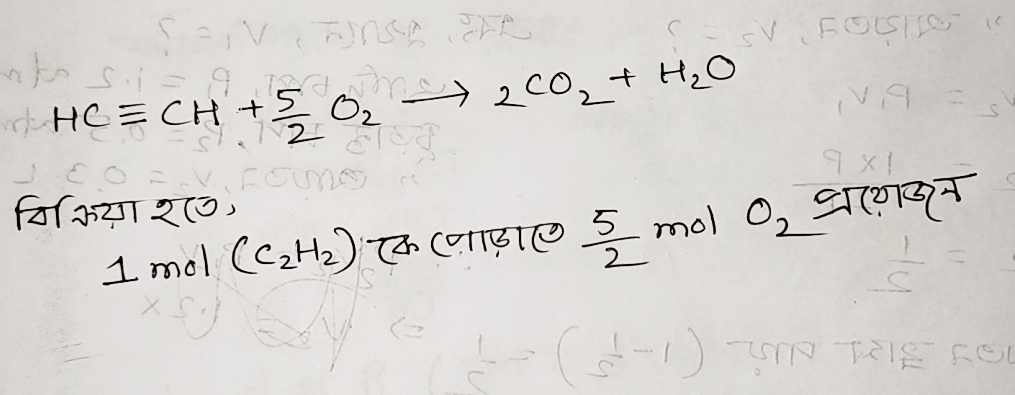 HC ≡ CH + 5/2 O₂ → 2CO₂ + H₂O
বিক্রিয়া হতে,
1 mol (C₂H₂) কে পোড়াতে 5/2 mol O₂ প্রয়োজন